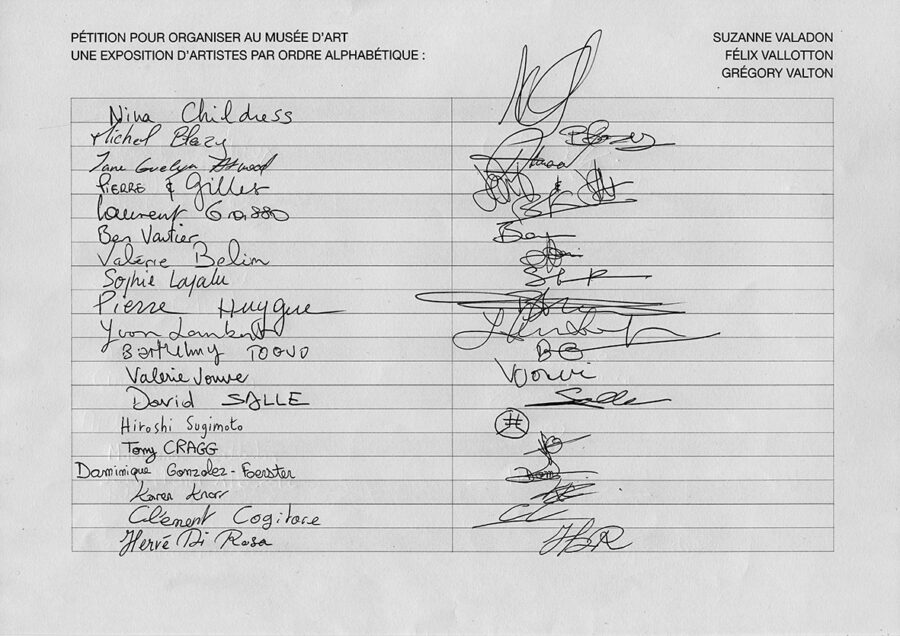 PÉTITION POUR ORGANISER AU MUSÉE D'ART
UNE EXPOSITION D'ARTISTES PAR ORDRE ALPHABÉTIQUE :
SUZANNE VALADON
FÉLIX VALLOTTON
GRÉGORY VALTON
Nina Childress
Michel Blazy Blazy
Jane Evelyn Atwood
PIERRE & Gilles &
Laurent Grasso
Ben Vautier Ben
Valérie Belin
Sophie Lapalu SLP
Pierre Huygue
Yvon Lambert
Barthélmy TOGUO
Valérie Jouve
David SALLE Salle
Hiroshi Sugimoto #
Tony CRAGG
Daminique Gonzolez-Foerster Dom
Karen Knorr
Clément Cogitore CC
Hervé Di Rosa HDR